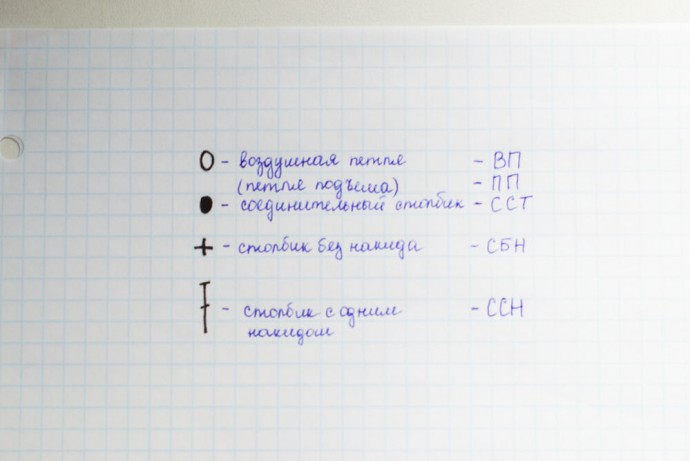 О - воздушная петля - ВП
(петля подъёма) - ПП
● - соединительный столбик - ССТ
+ - столбик без накида - СБН
- столбик с одним - ССН
накидом